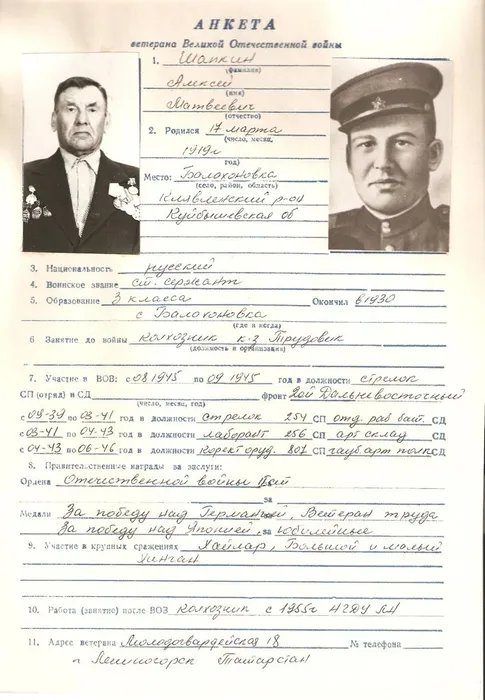 АНКЕТА
ветерана Великой Отечественной войны
1. Шапкин
(фамилия)
Алексей
(имя)
Матвеевич
(отчество)
2. Родился 17 марта
(число, месяц,
1919г
год)
Место: Балахоновка
(село, район, область)
Клявленский р-он
Куйбышевская об
3. Национальность русский
4. Воинское звание ст. сержант
5. Образование 3 класса Окончил в 1930
с Балахоновка
(где и когда)
6 Занятие до войны колхозник к-з Трудовик
(должность и организация)
7. Участие в ВОВ: с 08 1945 по 09 1945 год в должности стрелок
СП (отряд) и СД фронт 2ой Дальневосточный
(число, месяц, год)
с 09-39 по 03-41 год в должности стрелок 254 СП отд. раб бат. СД
с 03-41 по 04.43 год в должности лаборант 256 СП арт склад СД
с 04-43 по 06-46 год в должности корект оруд. 807 СП гауб. арт полк СД
8. Правительственные награды за заслуги:
Ордена Отечественной войны
за
Медали За победу над Германией, Ветеран труда
За победу над Японией, за юбилейные
9. Участие в крупных сражениях Хайлар, Большой и малый
Хинган
10. Работа (занятие) после ВОЗ колхозник с 1955г НГДУ
11. Адрес ветерана Молодогвардейская 18 № телефона
г Лениногорск Татарстан